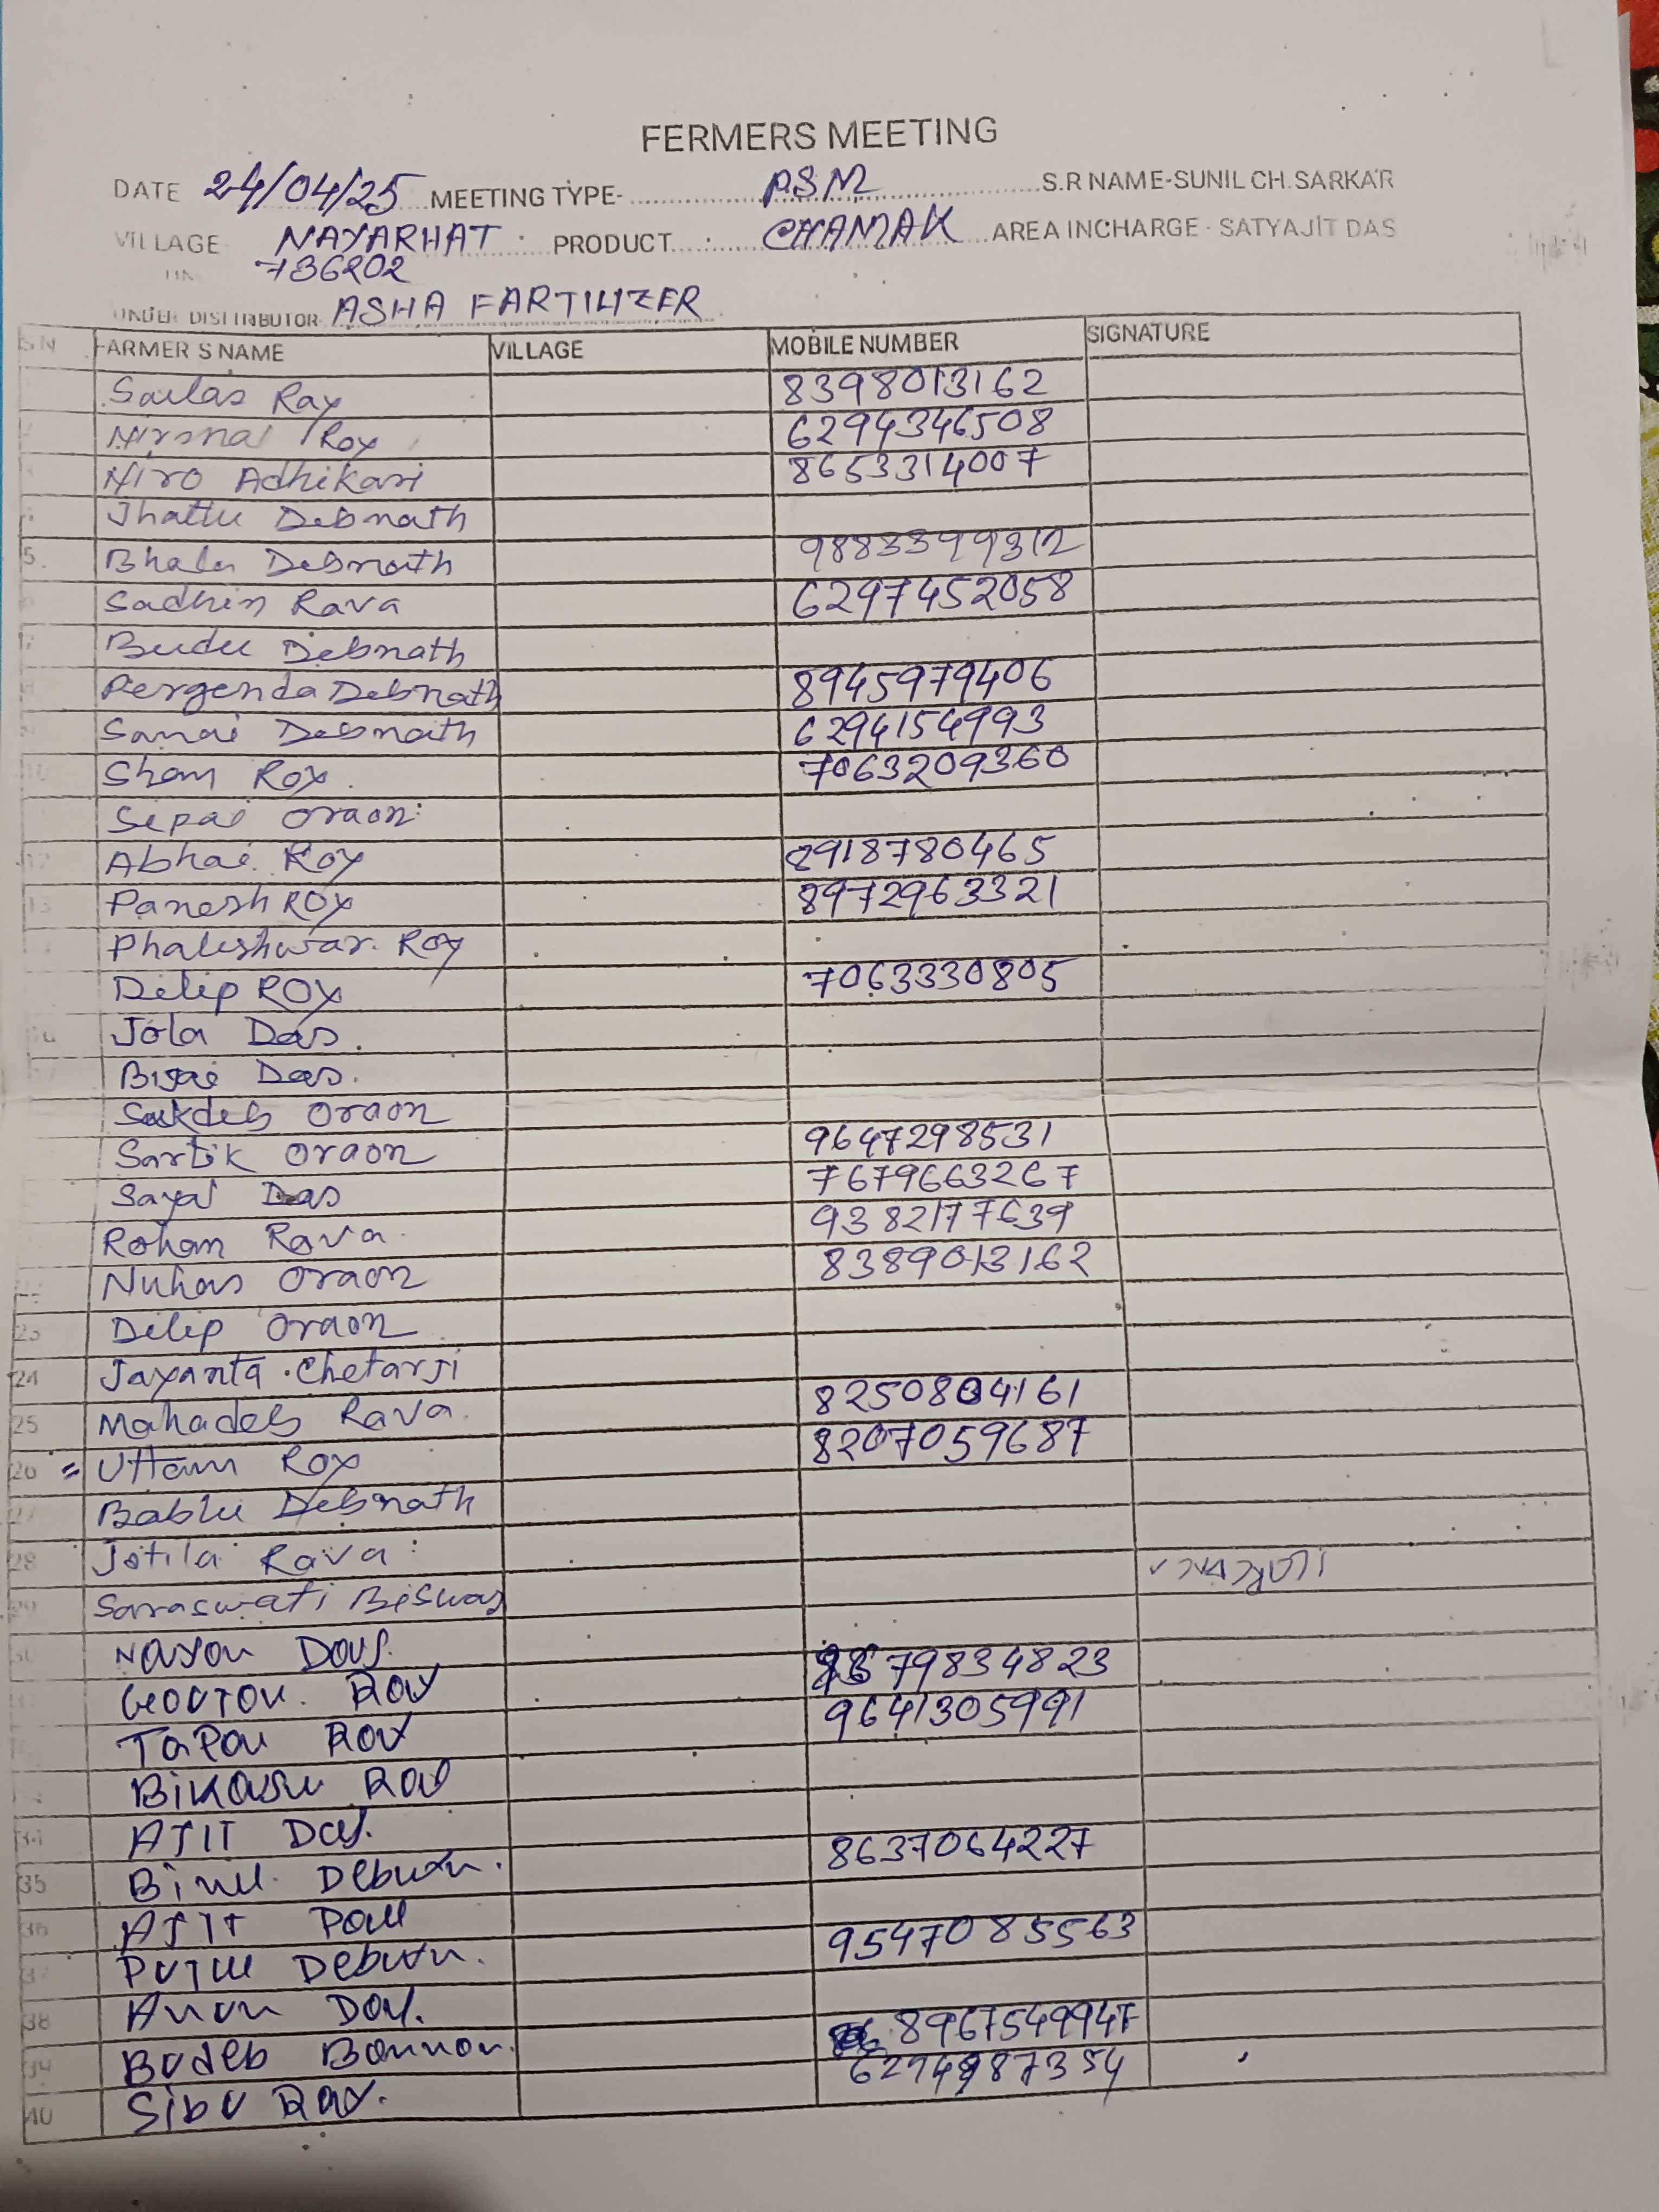 FERMERS MEETING
DATE 24/04/25 MEETING TYPE- PSM S.R NAME-SUNIL CH.SARKAR
VILLAGE NAYARHAT PRODUCT CHAMAK AREA INCHARGE - SATYAJIT DAS
736202
UNDER DISTTRIBUTOR ASHA FARTILIZER
SN FARMER S NAME VILLAGE MOBILE NUMBER SIGNATURE
Sailas Ray 8398013162
Nirmal Roy 6294346508
Niro Adhikari 8653314007
Jhattu Debnath
5. Bhalu Debnath 9883399312
Sadhin Rava 6297452058
Budu Debnath
Pergenda Debnath 8945979406
Sanai Debnath 6294154993
10 Sham Roy 7063209360
Sepai Oraon
12 Abhai Roy 8918780465
13 Panesh Roy 8972963321
Phaleshwar Roy
Dilip ROY 7063330805
Jola Das.
Bijai Das.
Sukdeb Oraon
Sartik Oraon 9647298531
Sayal Das 7679663267
Rohan Rava 9382177639
Nuhas Oraon 8389013162
23 Dilip Oraon
24 Jayanta Chetarji
25 Mahadeb Rava 8250804161
26 = Uttam Roy 8207059687
27 Bablu Debnath
28 Jotila Rava
29 Saraswati Biswas
30 Nayon Das.
Goutou. Ray 798834823
Tapou Roy 9641305991
Bikash Ray
34 AJIT Das.
35 Binu. Debnath. 8637064227
36 AJIT Paul
Putul Debnath. 9547085563
38 Anou Das.
39 Budeb Bonmon. 8967549947
40 Sibu Ray. 6294987354